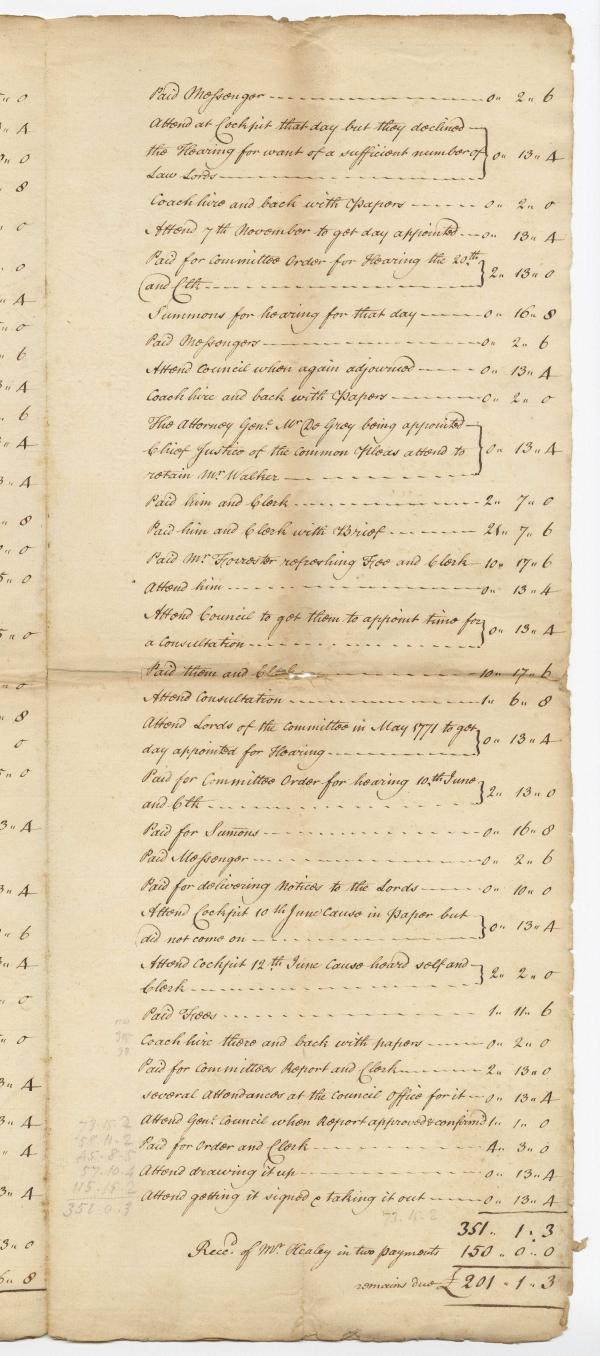 Paid Messenger 0" 2" 6
Attend at Cockpit that day but they declined
the Hearing for want of a sufficient number of 0" 13" 4
Law Lords
Coach hire and back with Papers 0" 2" 0
Attend 7th November to get day appointed 0" 13" 4
Paid for Committee Order for Hearing the 20th
and Clk 2" 13" 0
Summons for hearing for that day 0" 16" 8
Paid Messengers 0" 2" 6
Attend Council when again adjourned 0" 13" 4
Coach hire and back with Papers 0" 2" 0
The Attorney Genl. Mr. De Grey being appointed
Chief Justice of the Common Pleas attend to 0" 13" 4
retain Mr. Walker
Paid him and Clerk 2" 7" 0
Paid him and Clerk with Brief 21" 7" 6
Paid Mr. Forrester refreshing Fee and Clerk 10" 17" 6
Attend him 0" 13" 4
Attend Council to get them to appoint time for
a Consultation 0" 13" 4
Paid them and 10" 17" 6
Attend Consultation 1" 6" 8
Attend Lords of the Committee in May 1771 to get
day appointed for Hearing 0" 13" 4
Paid for Committee Order for hearing 10th June
and Clk 2" 13" 0
Paid for Sumons 0" 16" 8
Paid Messenger 0" 2" 6
Paid for delivering Notices to the Lords 0" 10" 0
Attend Cockpit 10th June Cause in Paper but
did not come on 0" 13" 4
Attend Cockpit 12th June Cause heard self and
Clerk 2" 2" 0
Paid Fees 1" 11" 6
Coach hire there and back with papers 0" 2" 0
Paid for Committees Report and Clerk 2" 13" 0
several Attendances at the Council Office for it 0" 13" 4
Attend Genl. Council when Report approved & confirmd 1" 1" 0
Paid for Order and Clerk 4" 3" 0
Attend drawing it up 0" 13" 4
Attend getting it signed & taking it out 0" 13" 4
73.15.2
351" 1" 3
Recd. of Mr. Healey in two payments 150" 0" 0
remains due £201" 1" 3